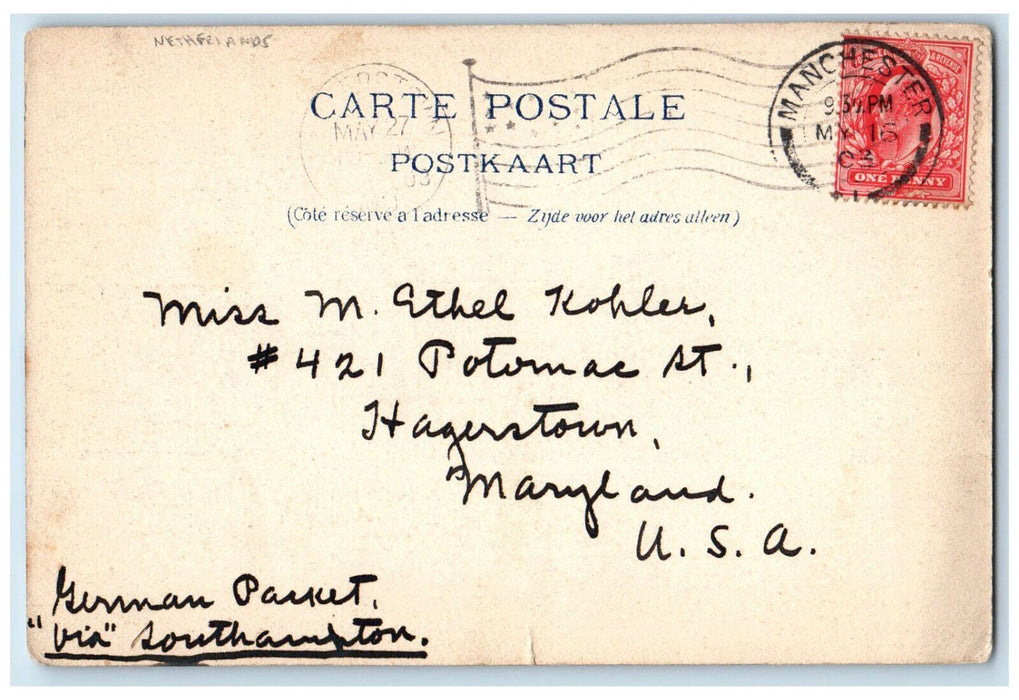 NETHERLANDS
CARTE POSTALE
POSTKAART
(Côté réservé a l adresse — Zijde voor het adres alleen)
MAY 27
03
MANCHESTER
PM
MY 16
03
ONE PENNY
Miss M. Ethel Kohler,
#421 Potomac St.,
Hagerstown,
Maryland.
U. S. A.
German Packet,
"via" Southampton.